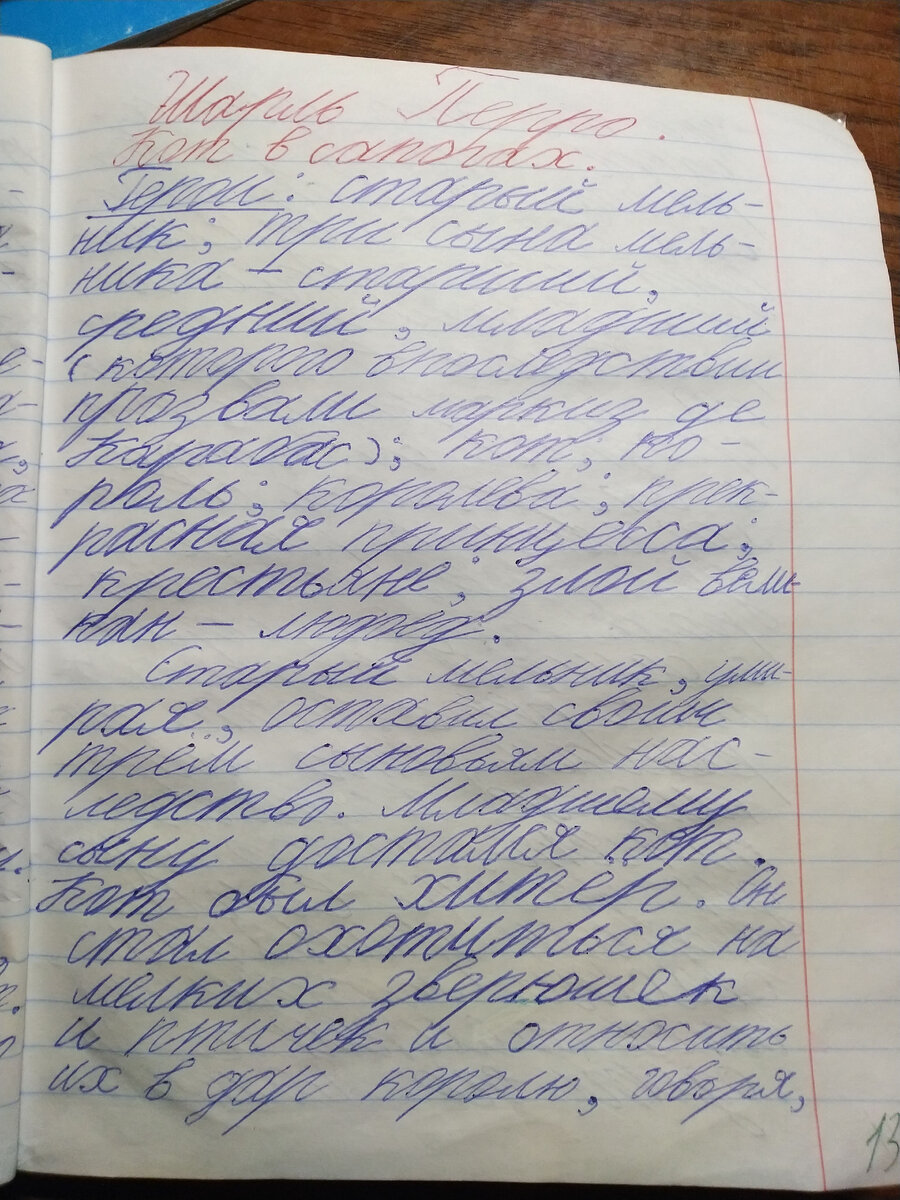 Шарль Перро.
Кот в сапогах.
Герои: старый мель-
ник; три сына мель-
ника – старший,
средний, младший
(которого впоследствии
прозвали маркиз де
Карабас); кот; ко-
роль; королева; прек-
расная принцесса;
крестьяне; злой вели-
кан – людоед.
Старый мельник, уми-
рая, оставил своим
трём сыновьям нас-
ледство. Младшему
сыну достался кот.
Кот был хитёр. Он
стал охотиться на
мелких зверюшек
и птичек и относить
их в дар королю, говоря,
13